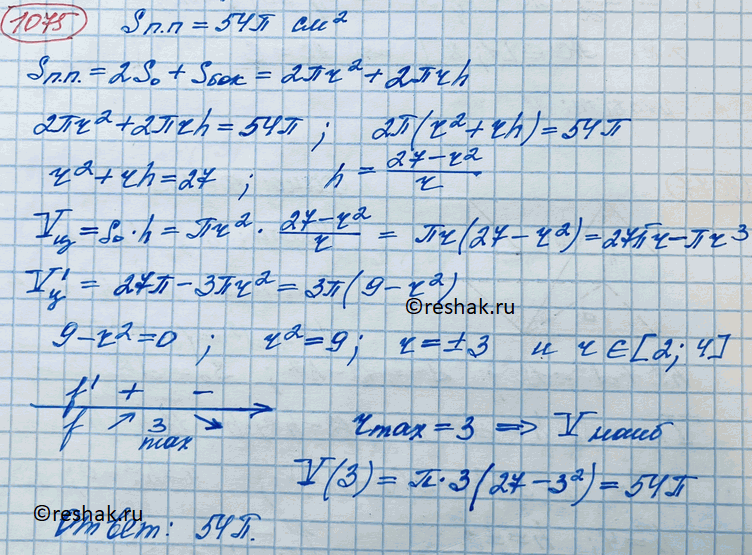 1075 Sп.п = 54π см²
Sп.п. = 2S₀ + Sбок = 2πr² + 2πrh
2πr² + 2πrh = 54π ; 2π(r² + rh) = 54π
r² + rh = 27 ; h = (27 − r²)/r
Vц = S₀ · h = πr² · (27 − r²)/r = πr(27 − r²) = 27πr − πr³
V'ц = 27π − 3πr² = 3π(9 − r²)
©reshak.ru
9 − r² = 0 ; r² = 9 ; r = ±3 и r ∈ [2; 4]
f' + −
f ↗ 3 ↘
max
rmax = 3 ⇒ Vнаиб
V(3) = π·3(27 − 3²) = 54π
©reshak.ru
Ответ: 54π.